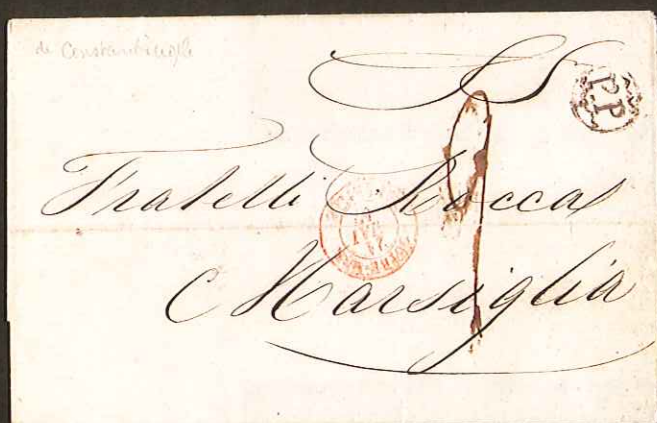 de Constantinople
SS
P.P.
Fratelli Rocca
Marsiglia